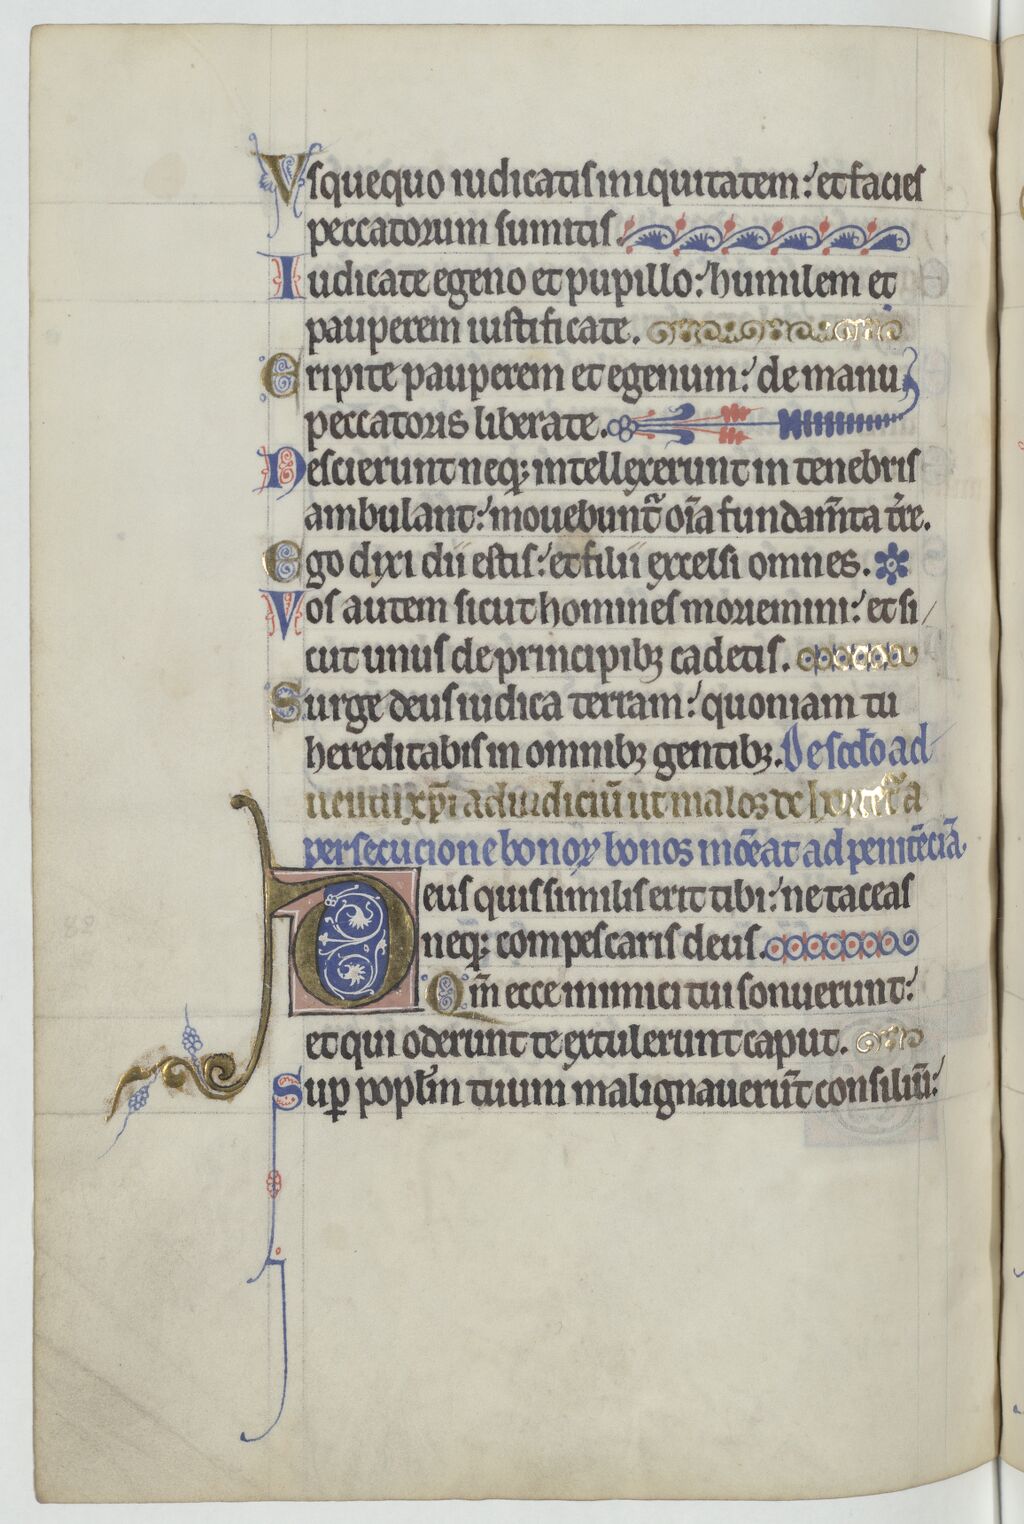 Vsquequo iudicatis iniquitatem: et facies
peccatorum sumitis.
Iudicate egeno et pupillo: humilem et
pauperem iustificate.
Eripite pauperem et egenum: de manu
peccatoris liberate.
Nescierunt neqꝫ intellexerunt in tenebris
ambulant: mouebunt᷑ oīa fundam̄ta t̄re.
Ego dixi dii estis: et filii excelsi omnes.
Vos autem sicut homines moriemini: et si/
cut unus de principibꝫ cadetis.
Surge deus iudica terram: quoniam tu
hereditabis in omnibꝫ gentibꝫ. De scd̄o ad
uentu xp̄i ad iudiciū ut malos
persecucione bonoꝝ bonos moūeat ad penitēciā.
Deus quis similis erit tibi: ne taceas
neqꝫ compescaris deus.
Qm̄ ecce inimici tui sonuerunt:
et qui oderunt te extulerunt caput.
Suꝑ popl̄m tuum malignauerūt consiliū: